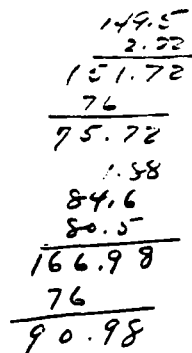 149.5
2.22
151.72
76
75.72
1.88
84.6
80.5
166.98
76
90.98